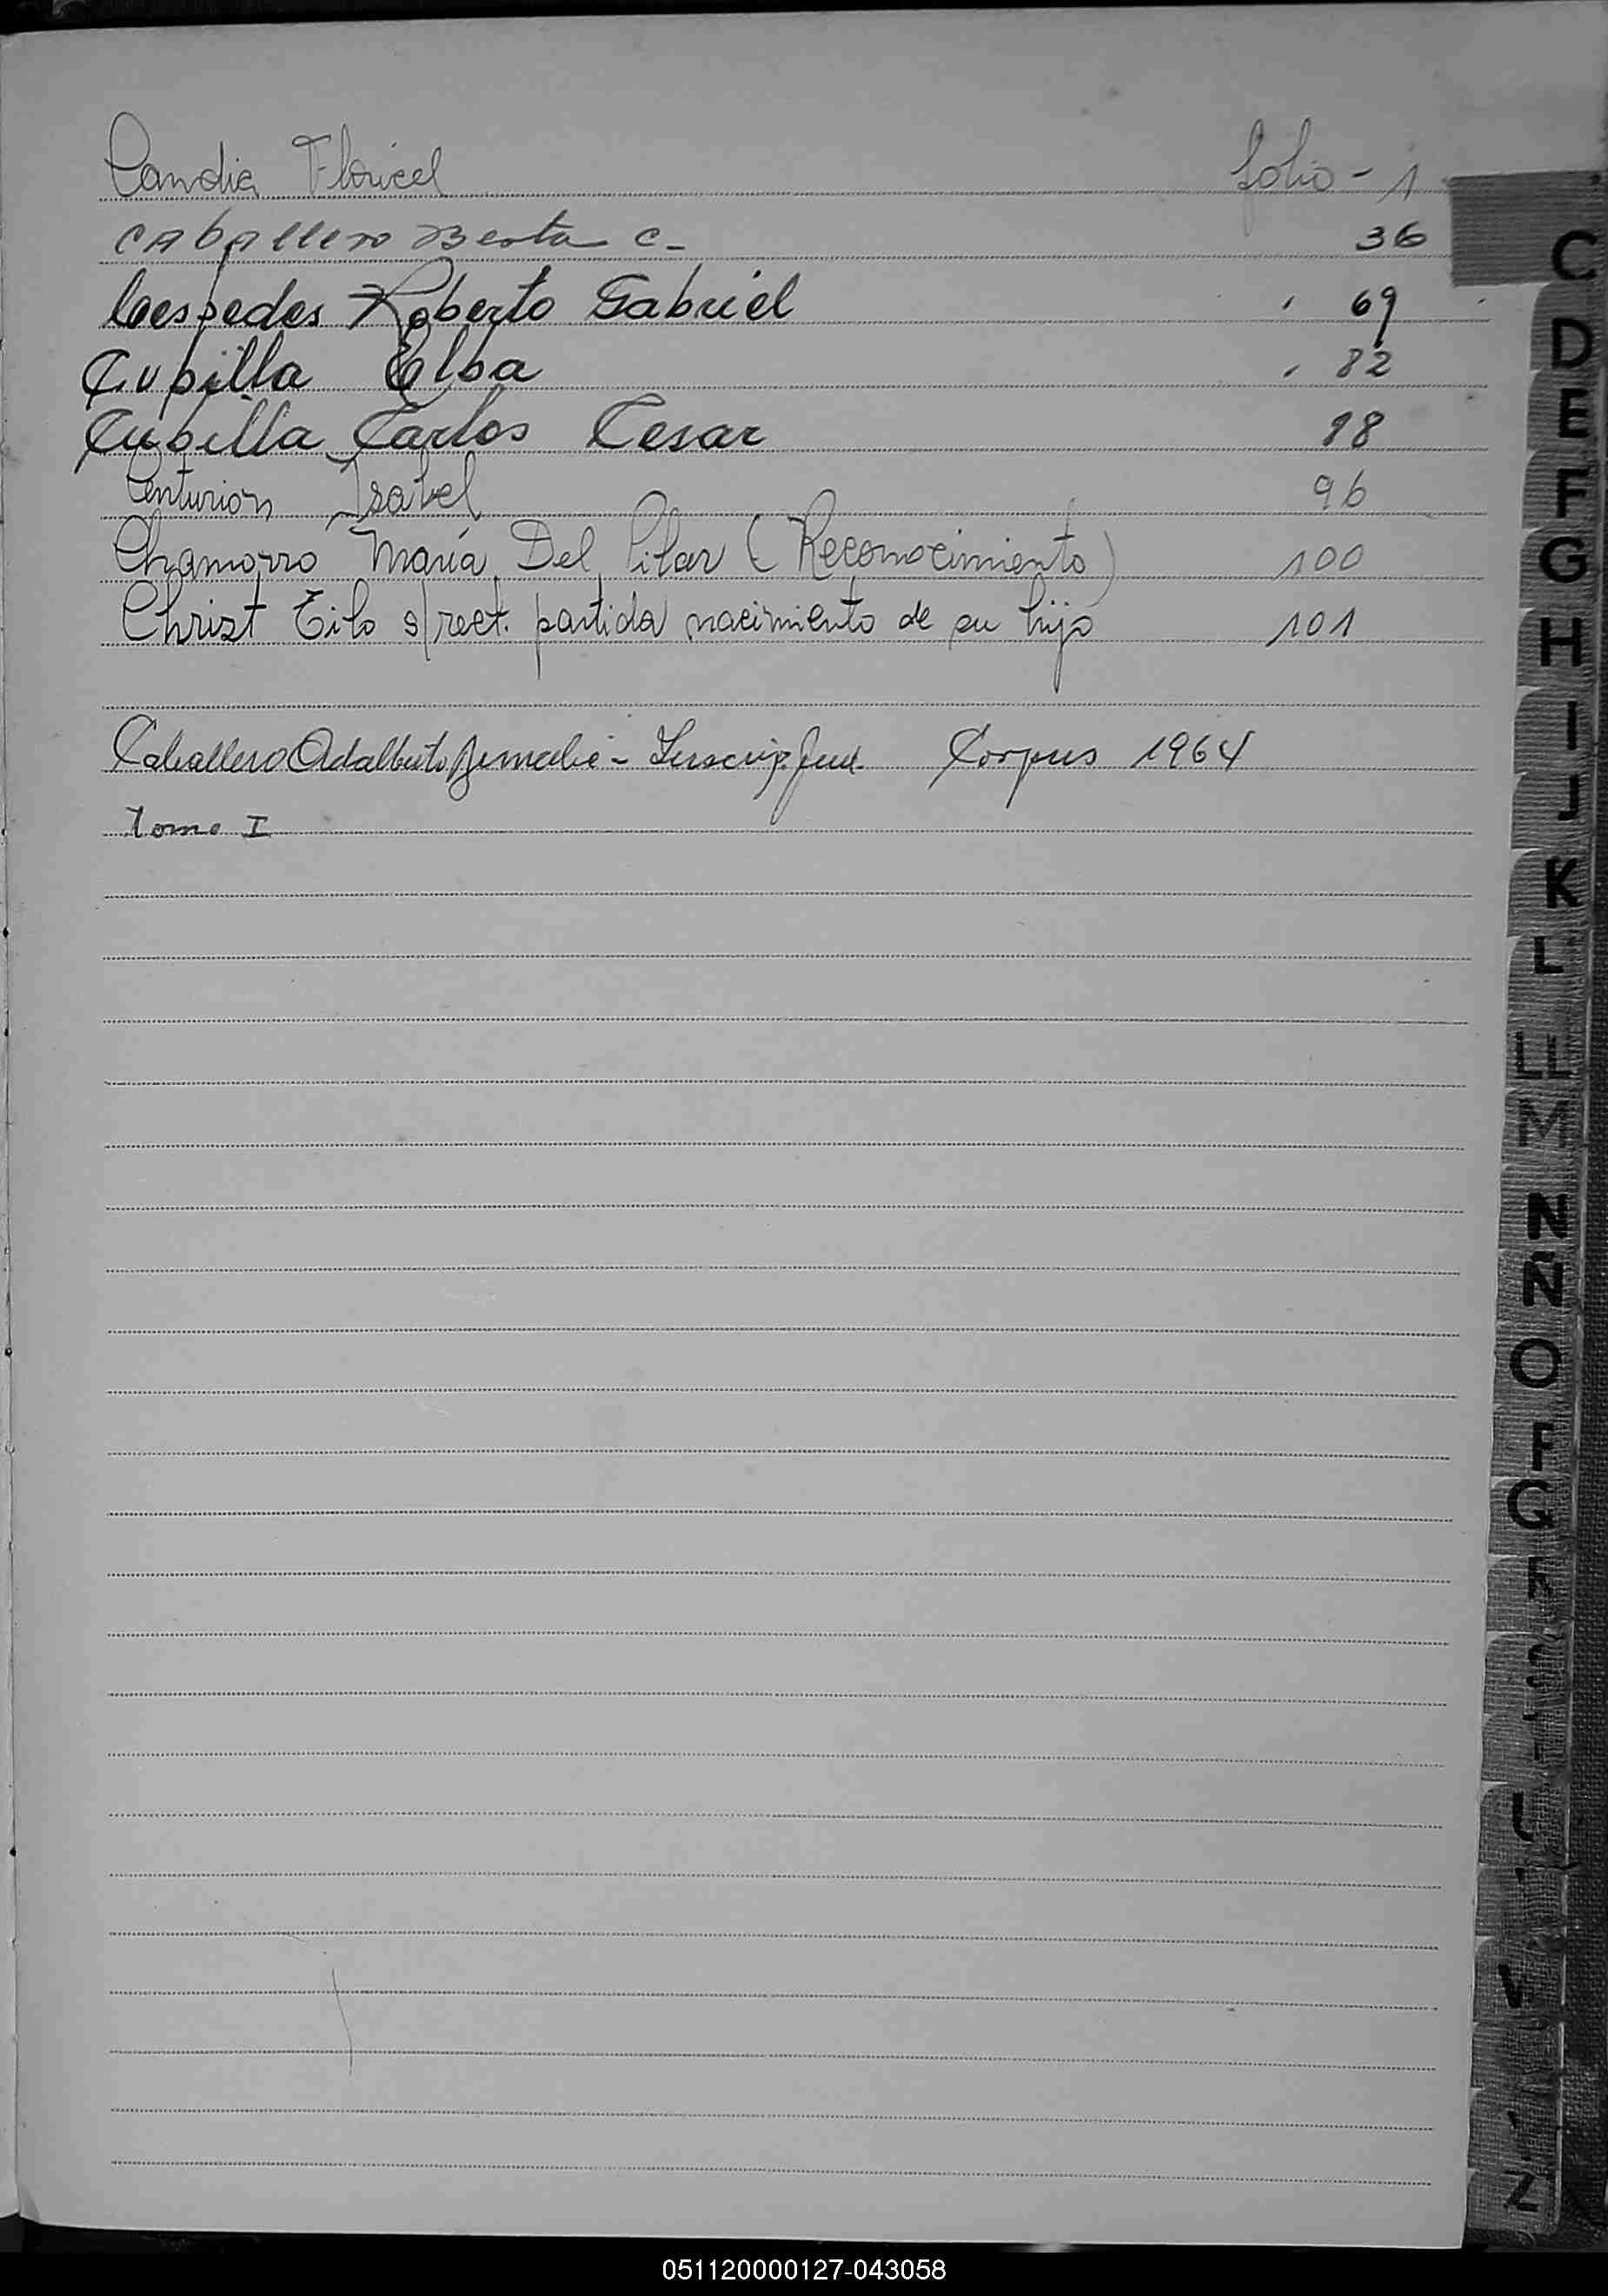 Candia Floricel folio - 1
Caballero Berta C- 36
Cespedes Roberto Gabriel 69
Cubilla Elba 82
Cubilla Carlos Cesar 98
Centurion Isabel 96
Chamorro María Del Pilar (Reconocimiento) 100
Christ Tito s/ rect. partida nacimiento de su hijo 101
Caballero Adalberto - Inscrip. Jud. Corpus 1964
Tomo I
C
D
E
F
G
H
I
J
K
L
LL
M
N
Ñ
O
P
Q
R
S
V
Z
051120000127-043058